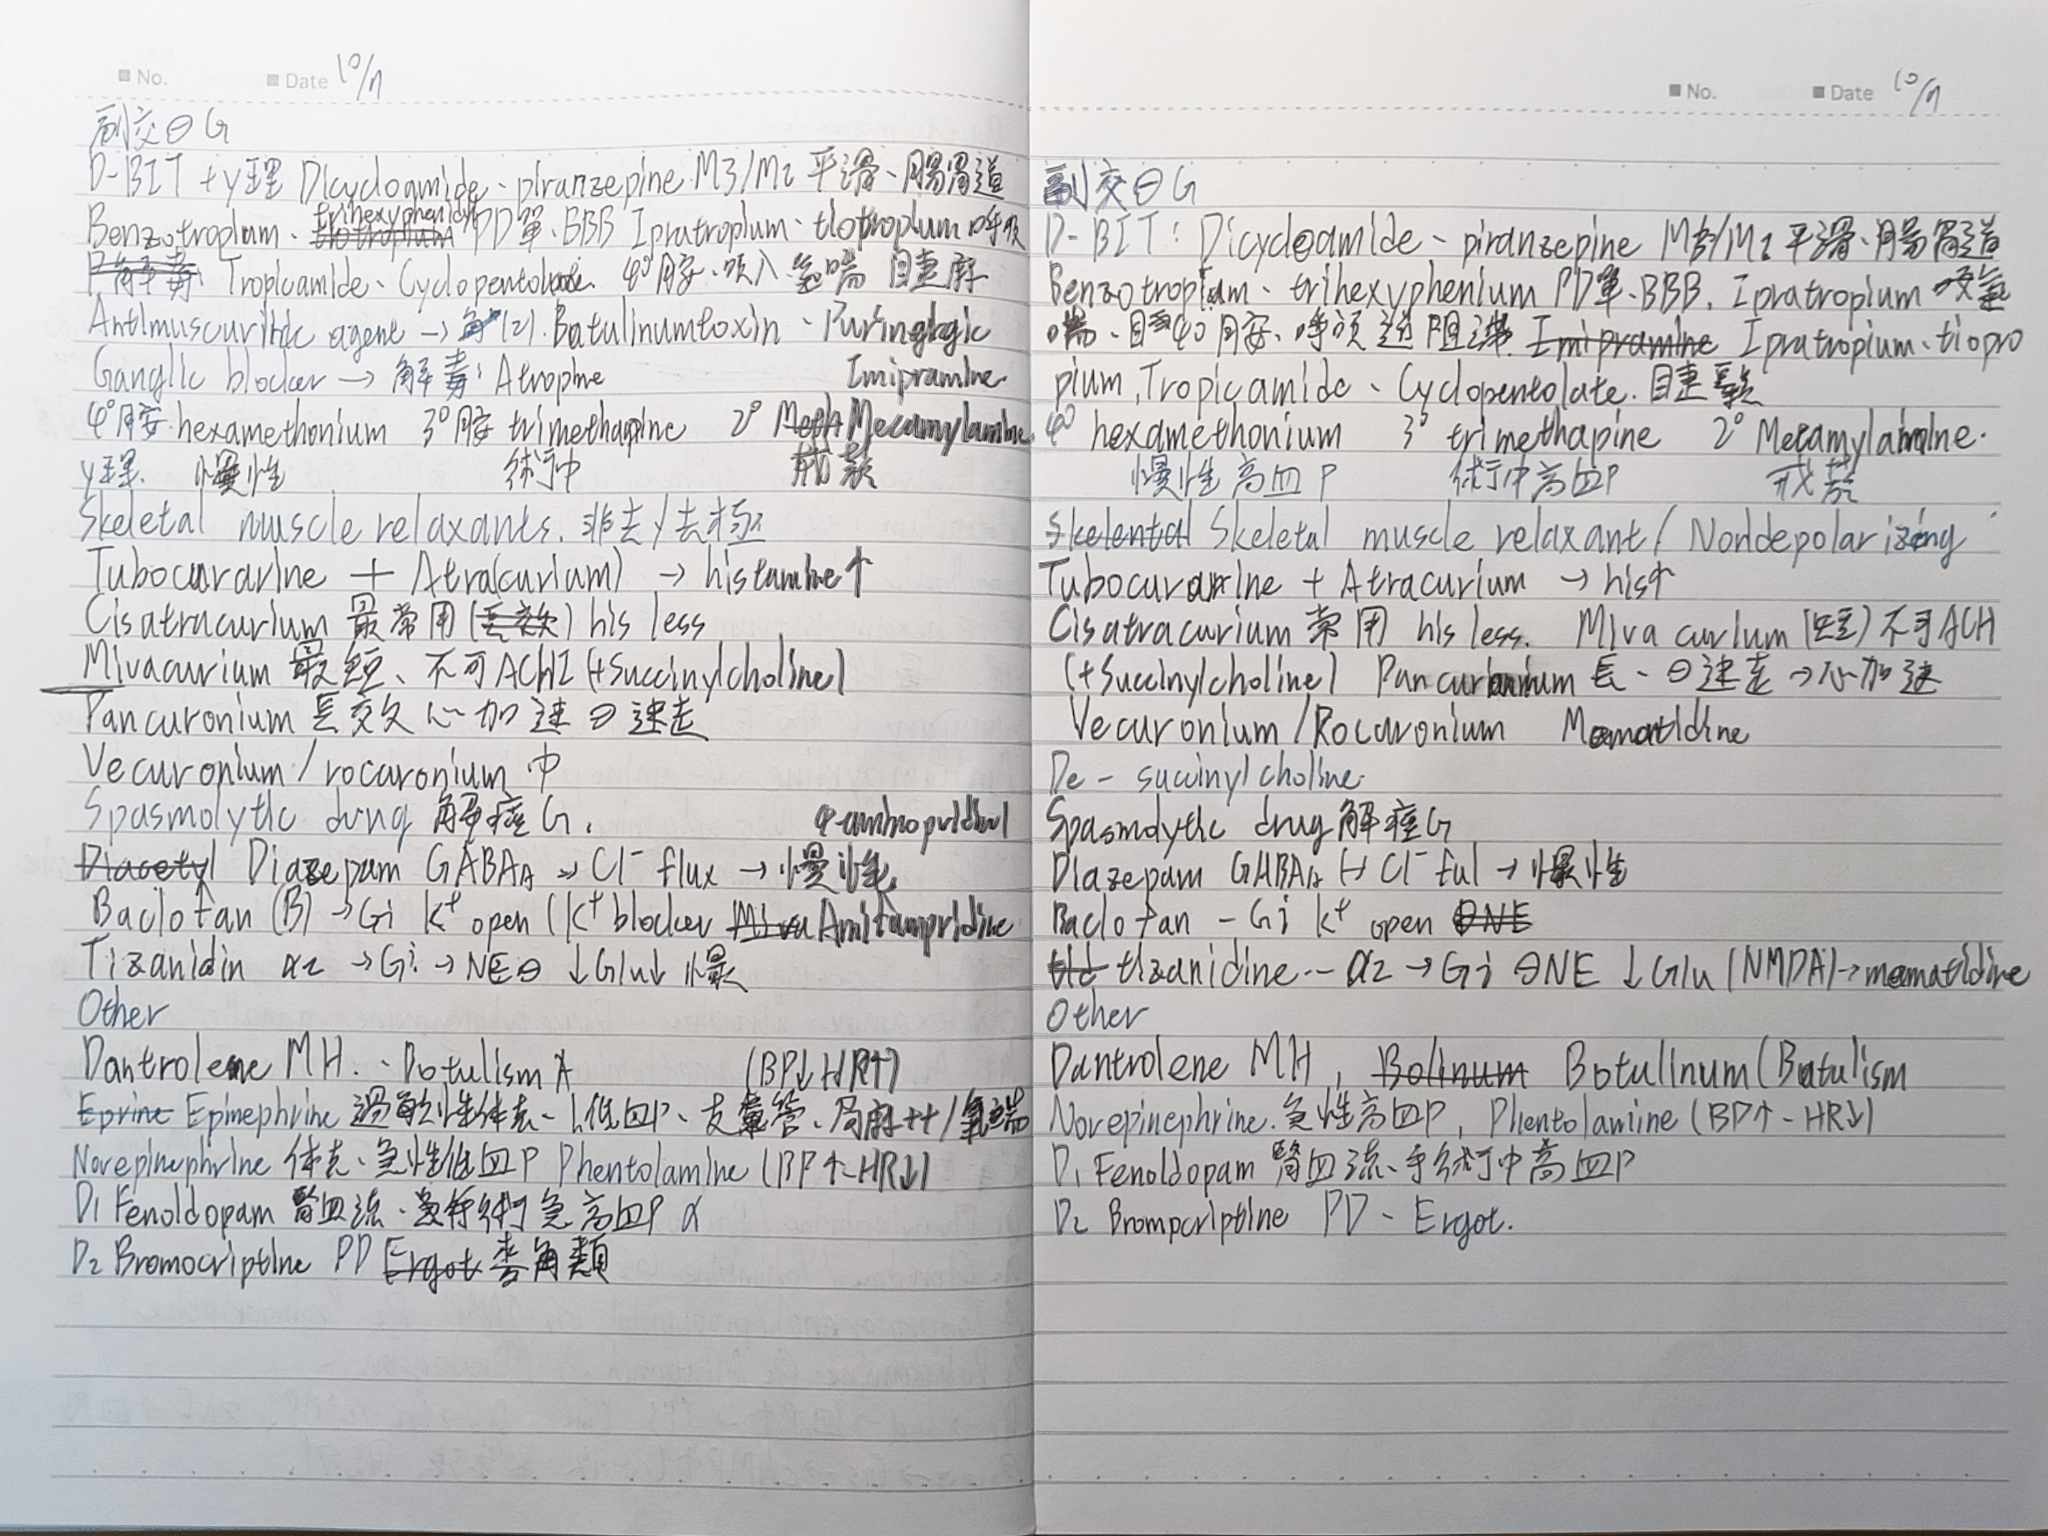 No. Date 10/7
副交⊖G
D-BIT + y理 Dicycloamide、piranzepine M3/M2 平滑、腸胃道
Benzotropium、trihexyphenidyl PD單、BBB Ipratropium、tiotropium 呼吸
Tropicamide、Cyclopentolate. 4°胺、吸入 氣喘
Antimuscurinic agent → (2). Batulinumtoxin、
Ganglic blocker → 解毒: Atropine Imipramine.
4°胺 hexamethonium 3°胺 trimethapine 2° Mecamylamine.
y理. 慢性 術中 戒菸
Skeletal muscle relaxants. 非去y去極
Tubocurarine + Atra(curium) → histamine↑
Cisatracurium 最常用 his less
Mivacurium 最短、不可ACHI (+Succinylcholine)
Pancuronium 長效 心加速 ⊖迷走
Vecuronium / rocuronium 中
Spasmolytic drug 解痙G.
Diazepam GABAA → Cl⁻ flux → 慢性
Baclofan (B) → Gi K⁺ open (K⁺ blocker Amifampridine
Tizanidin α2 → Gi → NE⊖ ↓Glu↓ 慢
Other
Dantrolene MH、Botulism A (BP↓ HR↑)
Epinephrine 過敏性休克、低血P、支氣管、局麻++/氣喘
Norepinephrine 休克、急性低血P Phentolamine (BP↑-HR↓)
D1 Fenoldopam 腎血流、急高血P α
D2 Bromocriptine PD Ergot 麥角類
No. Date 10/7
副交⊖G
D-BIT: Dicycloamide、piranzepine M3/M2 平滑、腸胃道
Benzotropium、trihexyphenium PD單、BBB. Ipratropium 吸氣
喘、4°胺、呼吸道阻 Imipramine Ipratropium、tiopro
pium, Tropicamide、Cyclopentolate.
4° hexamethonium 3° trimethapine 2° Mecamylamine.
慢性高血P 術中高血P 戒菸
Skelental Skeletal muscle relaxant / Nondepolarizing
Tubocurarine + Atracurium → his↑
Cisatracurium 常用 his less. Mivacurium (短) 不可ACH
(+Succinylcholine) Pancuronium 長、⊖迷走→心加速
Vecuronium / Rocuronium Memantidine
De - succinylcholine.
Spasmolytic drug 解痙G
Diazepam GABAA → Cl⁻ ful → 慢性
Baclofan - Gi K⁺ open ⊖NE
tizanidine -- α2 → Gi ⊖NE ↓Glu (NMDA) → memantidine
Other
Dantrolene MH, Bolinum Botulinum (Batulism
Norepinephrine. 急性高血P, Phentolamine (BP↑-HR↓)
D1 Fenoldopam 腎血流、手術中高血P
D2 Brompcriptine PD - Ergot.